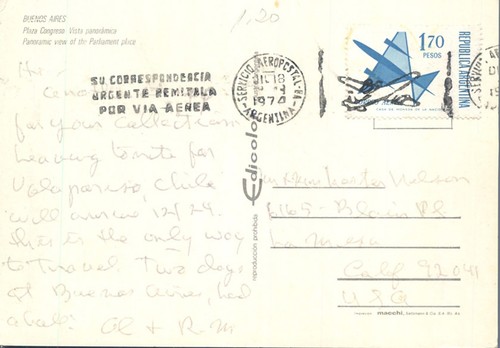 BUENOS AIRES
Plaza Congreso Vista panorámica
Panoramic view of the Parliament place
1.20
SU CORRESPONDENCIA
URGENTE REMITALA
POR VIA AEREA
SERVICIO AEROPOSTAL
ARGENTINA
DIC 18
1974
1.70
PESOS
REPUBLICA ARGENTINA
the
for your collection
leaving tonite for
Valparaiso, Chile
will arrive 12/24.
this is the only way
to Travel. Two days
at Buenos Aires, had
a ball. Al + R. M
Edicolor
reproducción prohibida
Nelson
6165 - Blain Pl.
La Mesa
Calif 92041
USA
macchi,